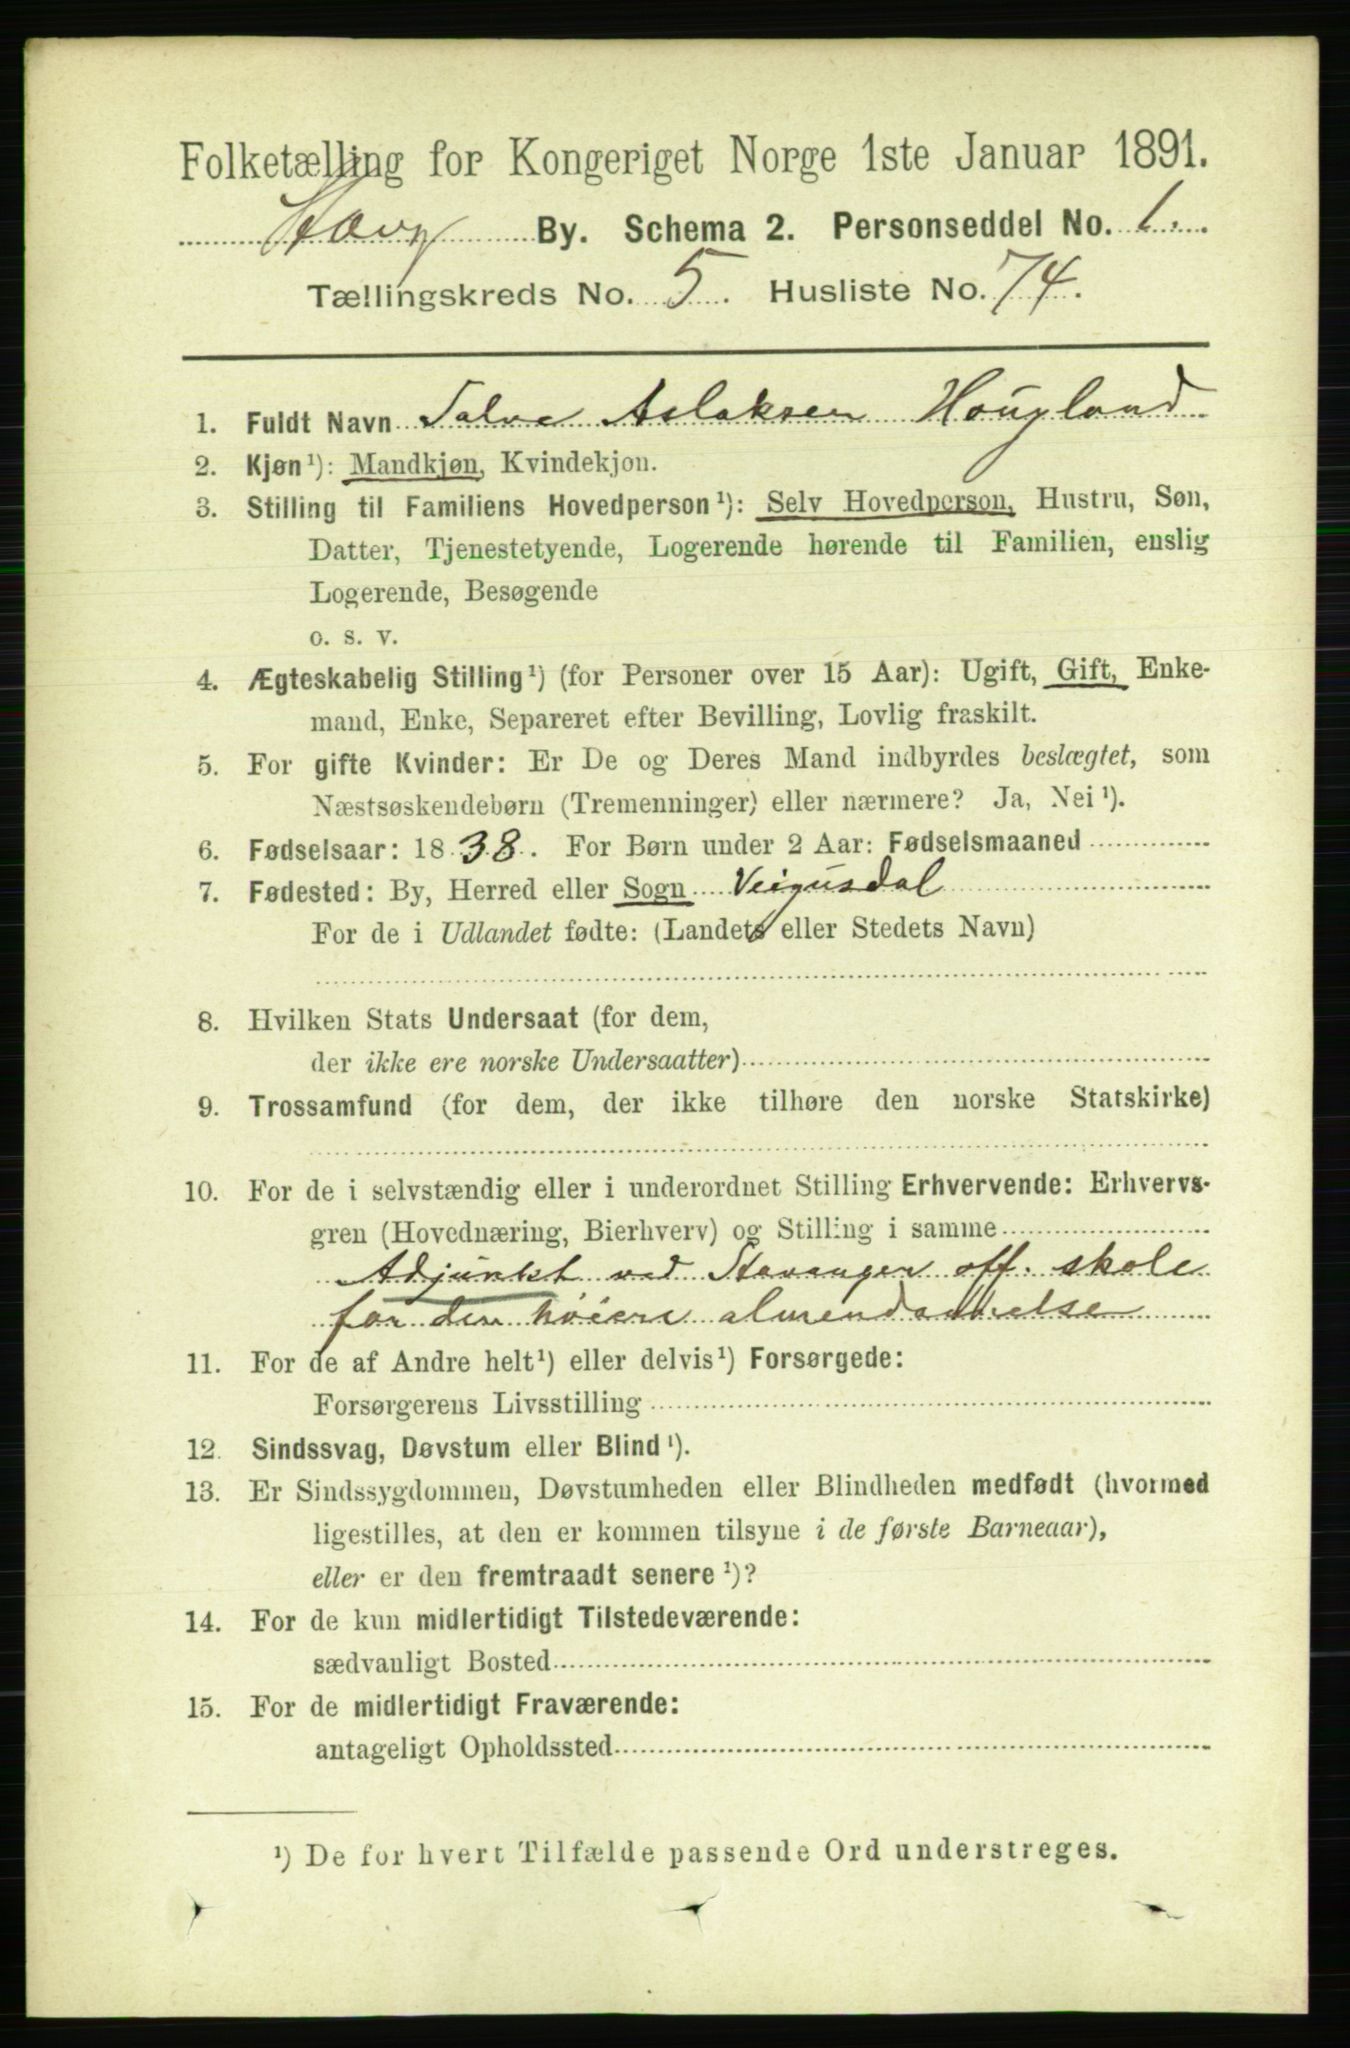 Folketælling for Kongeriget Norge 1ste Januar 1891.
Stavg By. Schema 2. Personseddel No. 1.
Tællingskreds No. 5. Husliste No. 74.
1. Fuldt Navn Salve Aslaksen Hougland
2. Kjøn¹): Mandkjøn, Kvindekjon.
3. Stilling til Familiens Hovedperson¹): Selv Hovedperson, Hustru, Søn,
Datter, Tjenestetyende, Logerende hørende til Familien, enslig
Logerende, Besøgende
o. s. v.
4. Ægteskabelig Stilling¹) (for Personer over 15 Aar): Ugift, Gift, Enke-
mand, Enke, Separeret efter Bevilling, Lovlig fraskilt.
5. For gifte Kvinder: Er De og Deres Mand indbyrdes beslægtet, som
Næstsøskendebørn (Tremenninger) eller nærmere? Ja, Nei¹).
6. Fødselsaar: 1838. For Børn under 2 Aar: Fødselsmaaned
7. Fødested: By, Herred eller Sogn Veigusdal
For de i Udlandet fødte: (Landets eller Stedets Navn)
8. Hvilken Stats Undersaat (for dem,
der ikke ere norske Undersaatter)
9. Trossamfund (for dem, der ikke tilhøre den norske Statskirke)
10. For de i selvstændig eller i underordnet Stilling Erhvervende: Erhvervs-
gren (Hovednæring, Bierhverv) og Stilling i samme
Adjunkt ved Stavanger off. skole
for den høiere almendannelse
11. For de af Andre helt¹) eller delvis¹) Forsørgede:
Forsørgerens Livsstilling
12. Sindssvag, Døvstum eller Blind¹).
13. Er Sindssygdommen, Døvstumheden eller Blindheden medfødt (hvormed
ligestilles, at den er kommen tilsyne i de første Barneaar),
eller er den fremtraadt senere¹)?
14. For de kun midlertidigt Tilstedeværende:
sædvanligt Bosted
15. For de midlertidigt Fraværende:
antageligt Opholdssted
¹) De for hvert Tilfælde passende Ord understreges.